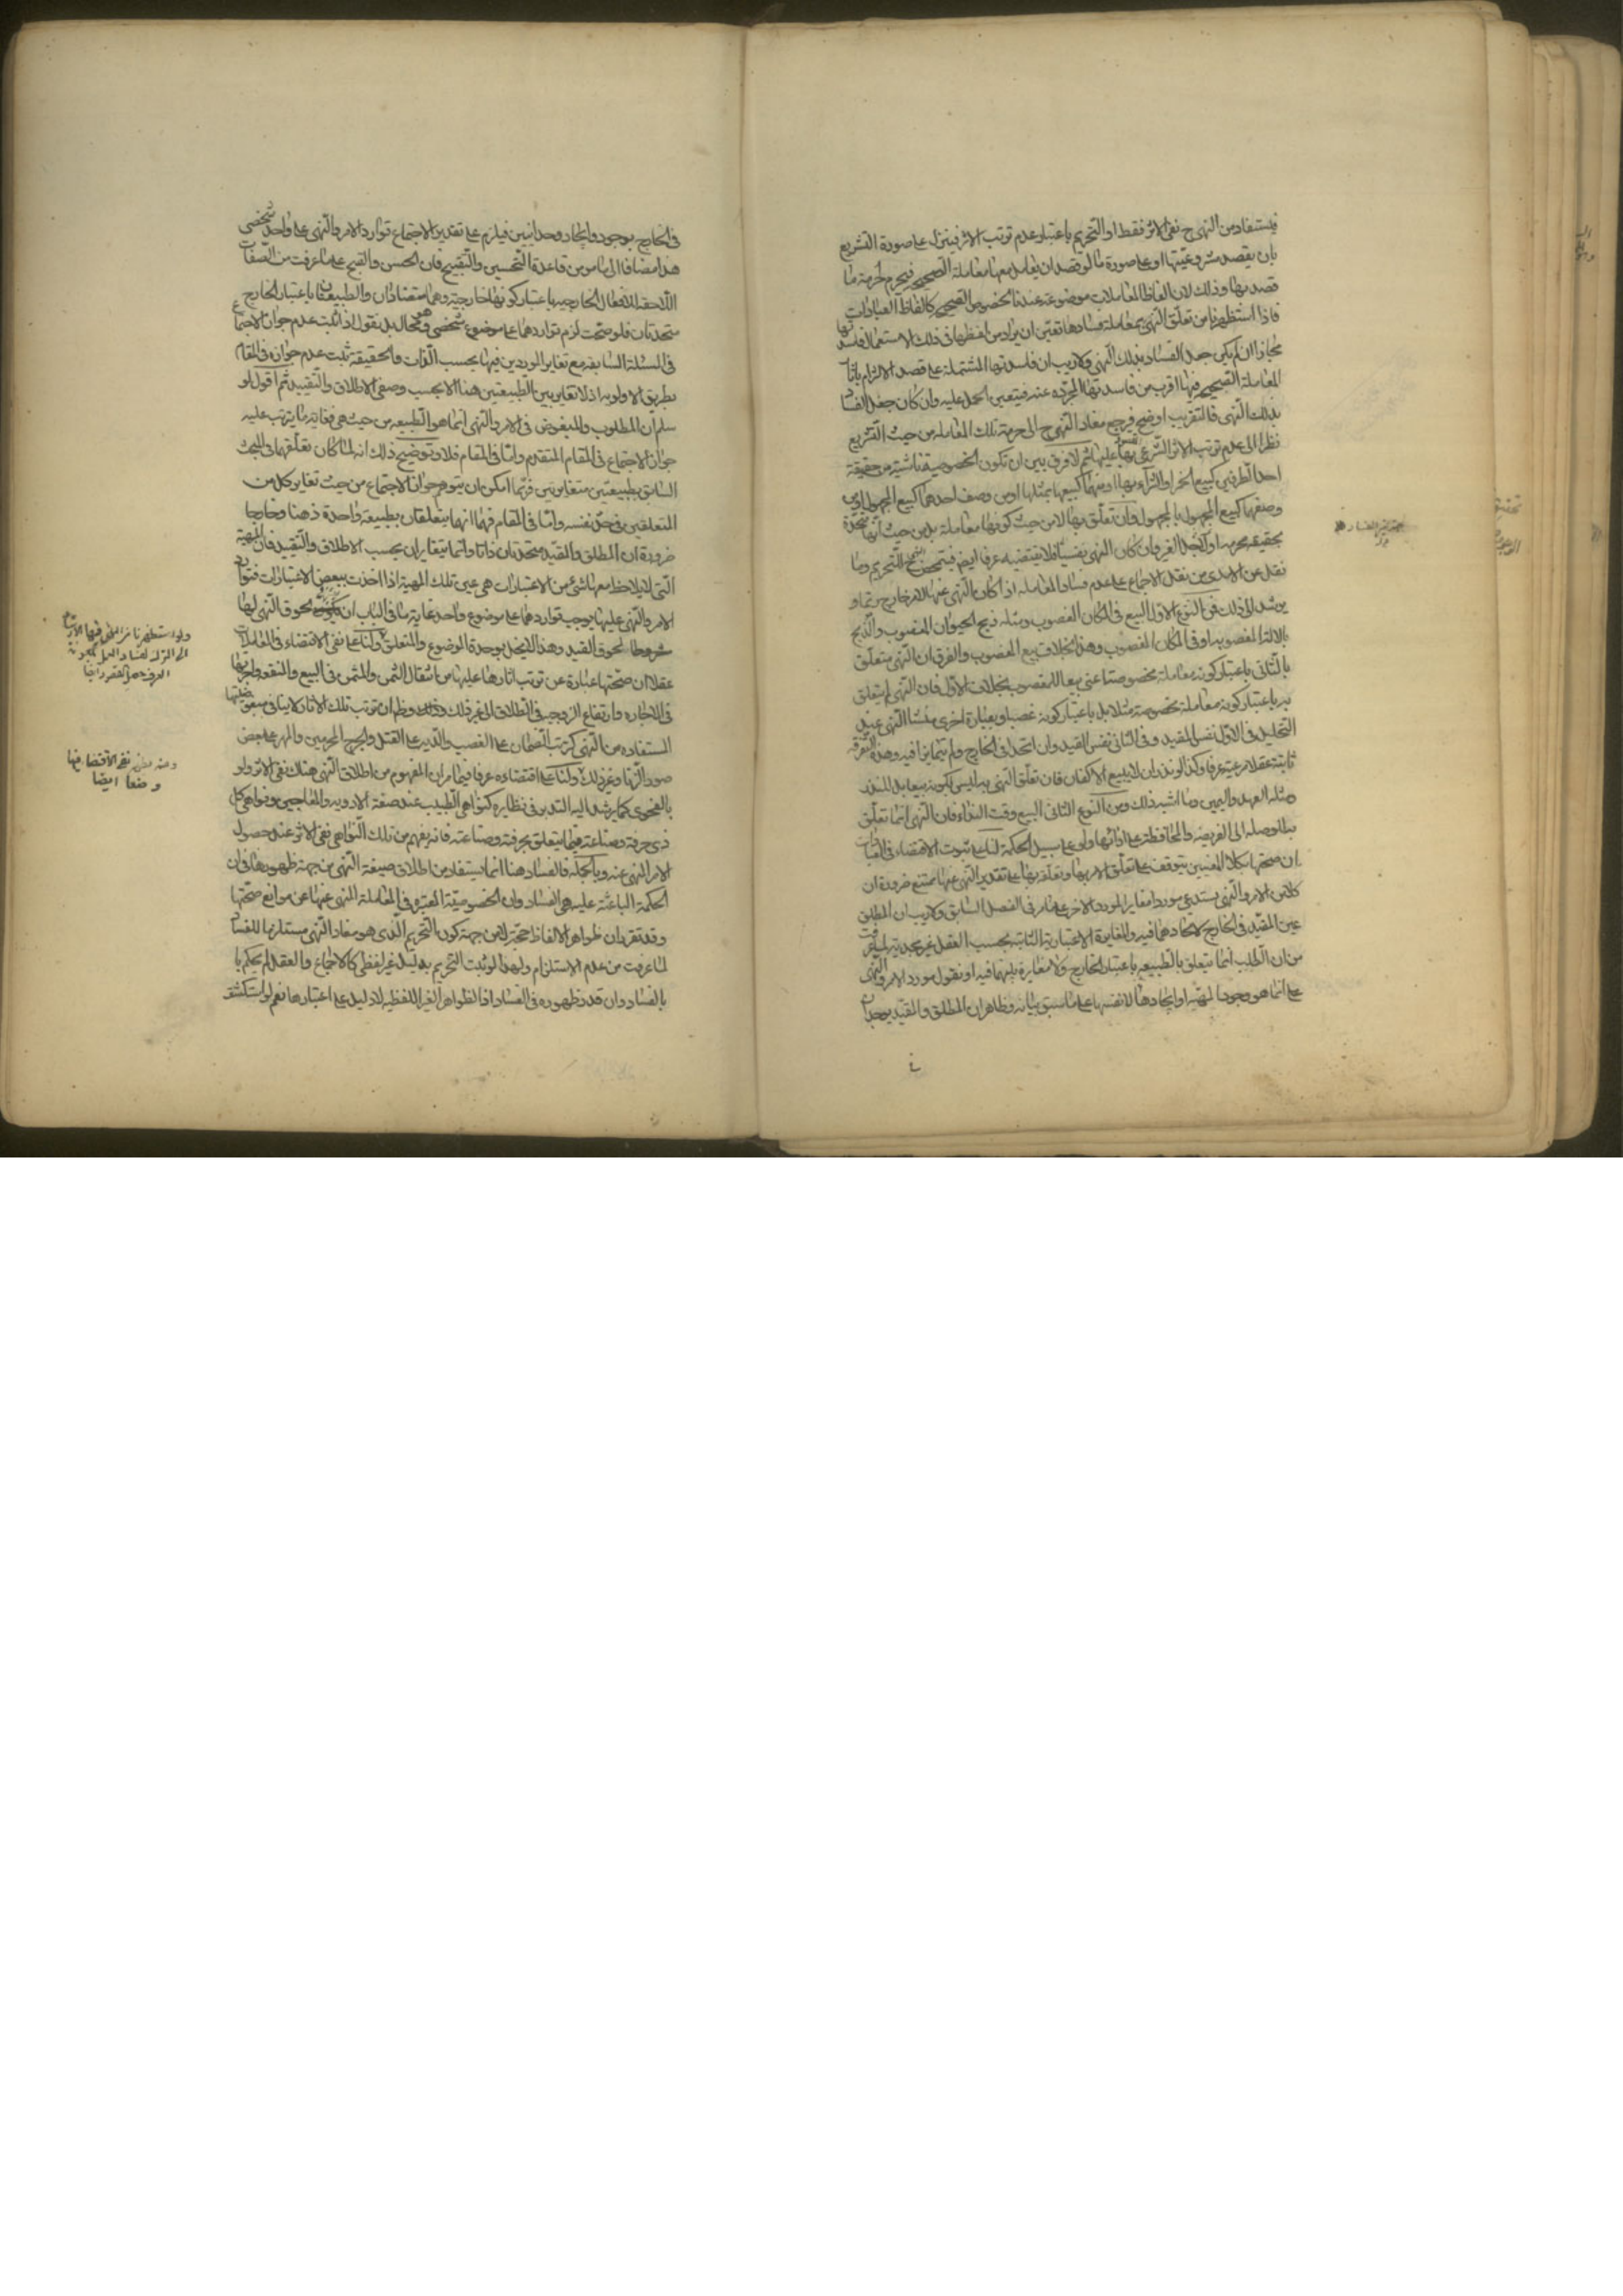 فيستفاد من النهى ح نفى الاثر فقط او التحريم باعتبار عدم ترتب الاثر فينزل على صورة التشريع
بان يقصد مشروعيتها او على صورة ما لو قصد ان يعامل معها معاملة الصحيحة فيحرم لحرمة ما
قصد بها وذلك لان الفاظ المعاملات موضوعة عندنا لخصوص الصحيحة كالفاظ العبادات
فاذا استظهرنا من تعلق النهى بمعاملة فسادها تعين ان يراد من لفظها فى ذلك الاستعمال فاسدتها
مجازا ان لم يكن جعل الفساد بذلك النهى ولا ريب ان فاسدتها المشتملة على قصد الالتزام باثار
المعاملة الصحيحة فيها اقرب من فاسدتها المجردة عنه فيتعين الحمل عليه وان كان جعل الفساد
بذلك النهى فالتقريب اوضح فيرجع مفاد النهى ح الى حرمة تلك المعاملة من حيث التشريع
نظرا الى عدم ترتب الاثر الشرعى عليها ثم لا فرق بين ان تكون الخصوصية ناشئة من حقيقة
احد الطرفين كبيع الخمر او الشراء بها او منهما كبيعها بمثلها او من وصف احدهما كبيع المجهول او من
وصفهما كبيع المجهول بالمجهول وان تعلق بها لا من حيث كونها معاملة بل من حيث انها متحدة
بحقيقة محرمة او لاجل الغير فان كان النهى نفسيا فلا يقتضيه عرفا ايضا فيتمحض ح للتحريم وما
نقل عن الامدى من نقل الاجماع على عدم فساد المعاملة اذا كان النهى عنها لامر خارج ربما و
يرشد الى ذلك فمن النوع الاول البيع فى المكان المغصوب ومثله ذبح الحيوان المغصوب والذبح
بالالة المغصوبة او فى المكان المغصوب وهذا بخلاف بيع المغصوب والفرق ان النهى متعلق
بالثانى باعتبار كونه معاملة مخصوصة اعنى بيعا للمغصوب بخلاف الاول فان النهى لم يتعلق
به باعتبار كونه معاملة مخصوصة مثلا بل باعتبار كونه غصبا وبعبارة اخرى منشا النهى عند
التحليل فى الاول نفس المقيد وفى الثانى نفس القيد وان اتحدا فى الخارج ولم يتمايزا فيه وهذه التفرقة
ثابتة عقلا مرعية عرفا وكذا لو نذر ان لا يبيع الاكفان فان تعلق النهى به ليس لكونه بيعا بل للنذر
ومثله العهد واليمين وما اشبه ذلك ومن النوع الثانى البيع وقت النداء فان النهى انما تعلق
به للوصلة الى الفريضة والمحافظة على ادائها ولو على سبيل الحكمة لنا على ثبوت الاقتضاء فى العبادات
ان صحتها بكلا المعنيين يتوقف على تعلق الامر بها وتعلقه بها على تقدير النهى عنها ممتنع ضرورة ان
كلا من الامر والنهى يستدعى موردا مغايرا لمورد الاخر على ما مر فى الفصل السابق ولا ريب ان المطلق
عين المقيد فى الخارج لاتحادهما فيه والمغايرة الاعتبارية الثابتة بحسب العقل غير مجدية لما عرفت
من ان الطلب انما يتعلق بالطبيعة باعتبار الخارج ولا مغايرة بينهما فيه او نقول مورد الامر والنهى
على انما هو وجود المهية او ايجادها لا نفسها على ما سبق بيانه وظاهر ان المطلق والمقيد يوجدان
فى
فى الخارج بوجود وايجاد وحدانيين فيلزم على تقدير الاجتماع توارد الامر والنهى على واحد شخصى
هذا مضافا الى ما مر من قاعدة التحسين والتقبيح فان الحسن والقبح على ما عرفت من الصفات
اللاحقة للافعال الخارجية باعتبار كونها خارجية وهما متضادان والطبيعتان باعتبار الخارج
متحدتان فلو صحت لزم تواردهما على موضوع شخصى وهو محال بل نقول اذا ثبت عدم جواز الاجتماع
فى المسئلة السابقة مع تغاير الموردين فيها بحسب الذات والحقيقة ثبت عدم جوازه فى المقام
بطريق الاولوية اذ لا تغاير بين الطبيعتين هنا الا بحسب وصفى الاطلاق والتقييد ثم اقول لو
سلم ان المطلوب والمبغوض فى الامر والنهى انما هو الطبيعة من حيث هى فغاية ما يترتب عليه
جواز الاجتماع فى المقام المتقدم واما فى المقام فلا وتوضيح ذلك انه لما كان تعلقهما فى المبحث
السابق بطبيعتين متغايرتين فربما امكن ان يتوهم جواز الاجتماع من حيث تغاير كل من
المتعلقين فى حد نفسه واما فى المقام فهما انما يتعلقان بطبيعة واحدة ذهنا وخارجا
ضرورة ان المطلق والمقيد متحدتان ذاتا وانما يتغايران بحسب الاطلاق والتقييد فان المهية
التى لا يلاحظ معها شئ من الاعتبارات هى عين تلك المهية اذا اخذت ببعض الاعتبارات فتوارد
الامر والنهى عليها يوجب تواردهما على موضوع واحد غاية ما فى الباب ان يكون لحوق النهى لها
مشروطا بلحوق القيد وهذا لا يخل بوحدة الموضوع والمتعلق ولنا على نفى الاقتضاء فى المعاملات
عقلا ان صحتها عبارة عن ترتب اثارها عليها من انتقال الثمن والمثمن فى البيع والنفع
فى الاجارة وارتفاع الزوجية فى الطلاق الى غير ذلك وظ ان ترتب تلك الاثار لا ينافى مبغوضيتها
المستفادة من النهى كترتب الضمان على الغصب والدية على القتل والمهر على بعض
صور الزنا وغير ذلك ولنا على اقتضاءه عرفا فيما مر ان المفهوم من اطلاق النهى هناك نفى الاثر ولو
بالفحوى كما يرشد اليه التدبر فى نظايره كنواهى الطبيب عند صنعة الادوية والمعاجين ونواهى كل
ذى حرفة وصناعة فيما يتعلق بحرفته وصناعته فانه يفهم من تلك النواهى نفى الاثر عند حصول
الامر المنهى عنه وبالجملة فالفساد هنا انما يستفاد من اطلاق صيغة النهى من جهة ظهورها فى ان
الحكمة الباعثة عليه هى الفساد وان الخصوصية المعتبرة فى المعاملة المنهى عنها من موانع صحتها
وقد تقرر ان ظواهر الالفاظ حجة لا من جهة كون التحريم الذى هو مفاد النهى مستلزما للفساد
لما عرفت من عدم الاستلزام ولهذا لو ثبت التحريم بدليل غير لفظى كالاجماع والعقل لم يحكم با
بالفساد وان قدر ظهوره فى الفساد اذ الظواهر الغير اللفظية لا دليل على اعتبارها نعم لو استكشف
ومنه يظهر نفى الاقتضاء فيها
وضعا ايضا